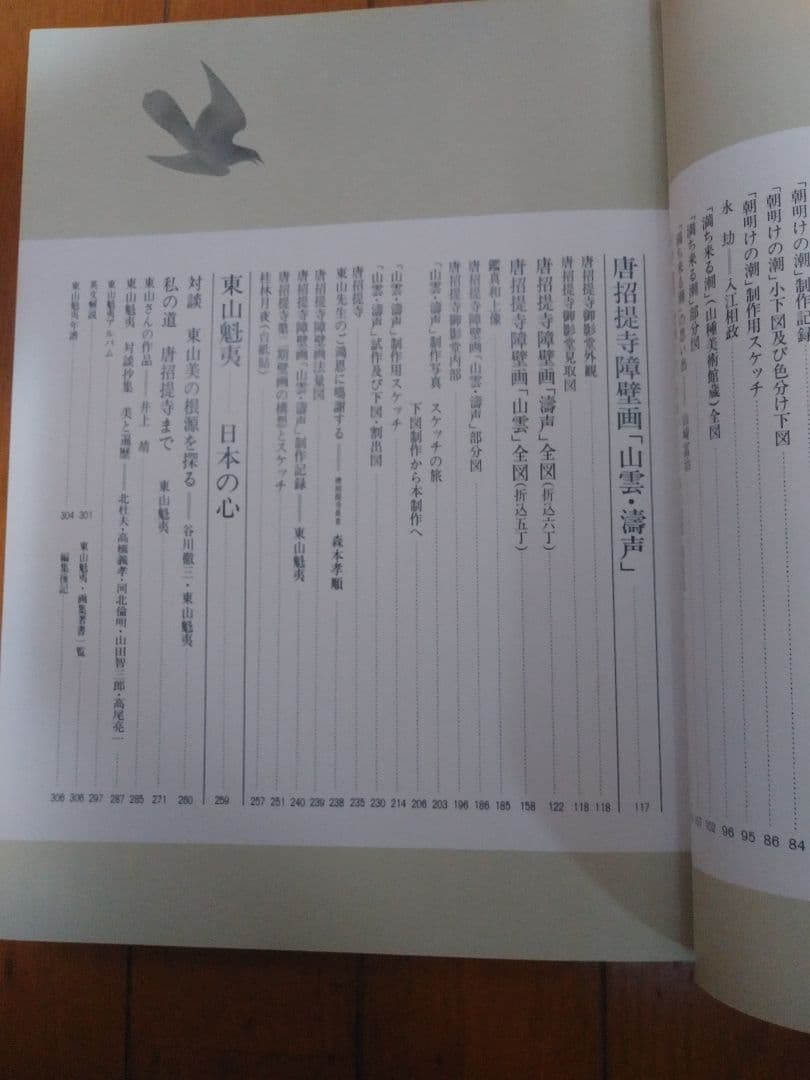 「朝明けの潮」制作記録 84
「朝明けの潮」小下図及び色分け下図 86
「朝明けの潮」制作用スケッチ 95
永 劫――入江相政 96
「満ち来る潮」(山種美術館蔵)全図 102
「満ち来る潮」部分図
唐招提寺障壁画「山雲・濤声」 117
唐招提寺御影堂外観 118
唐招提寺御影堂見取図 118
唐招提寺障壁画「濤声」全図(折込六丁) 122
唐招提寺障壁画「山雲」全図(折込五丁) 158
鑑真和上像 185
唐招提寺障壁画「山雲・濤声」部分図 186
唐招提寺御影堂内部 196
「山雲・濤声」制作写真 スケッチの旅 203
下図制作から本制作へ 206
「山雲・濤声」制作用スケッチ 214
「山雲・濤声」試作及び下図・割出図 230
唐招提寺 235
東山先生のご鴻恩に鳴謝する―― 森本孝順 238
唐招提寺障壁画法量図 239
唐招提寺障壁画「山雲・濤声」制作記録――東山魁夷 240
唐招提寺第二期壁画の構想とスケッチ 251
桂林月夜(台紙貼) 257
東山魁夷――日本の心 259
対談 東山美の根源を探る――谷川徹三・東山魁夷 260
私の道 唐招提寺まで 東山魁夷 271
東山さんの作品――井上 靖 285
東山魁夷 対談抄集 美と遍歴――北杜夫・高橋義孝・河北倫明・山田智三郎・高尾亮一 287
東山魁夷アルバム 297
英文解説 301
東山魁夷年譜 304
東山魁夷・画集著書一覧 306
編集後記 306